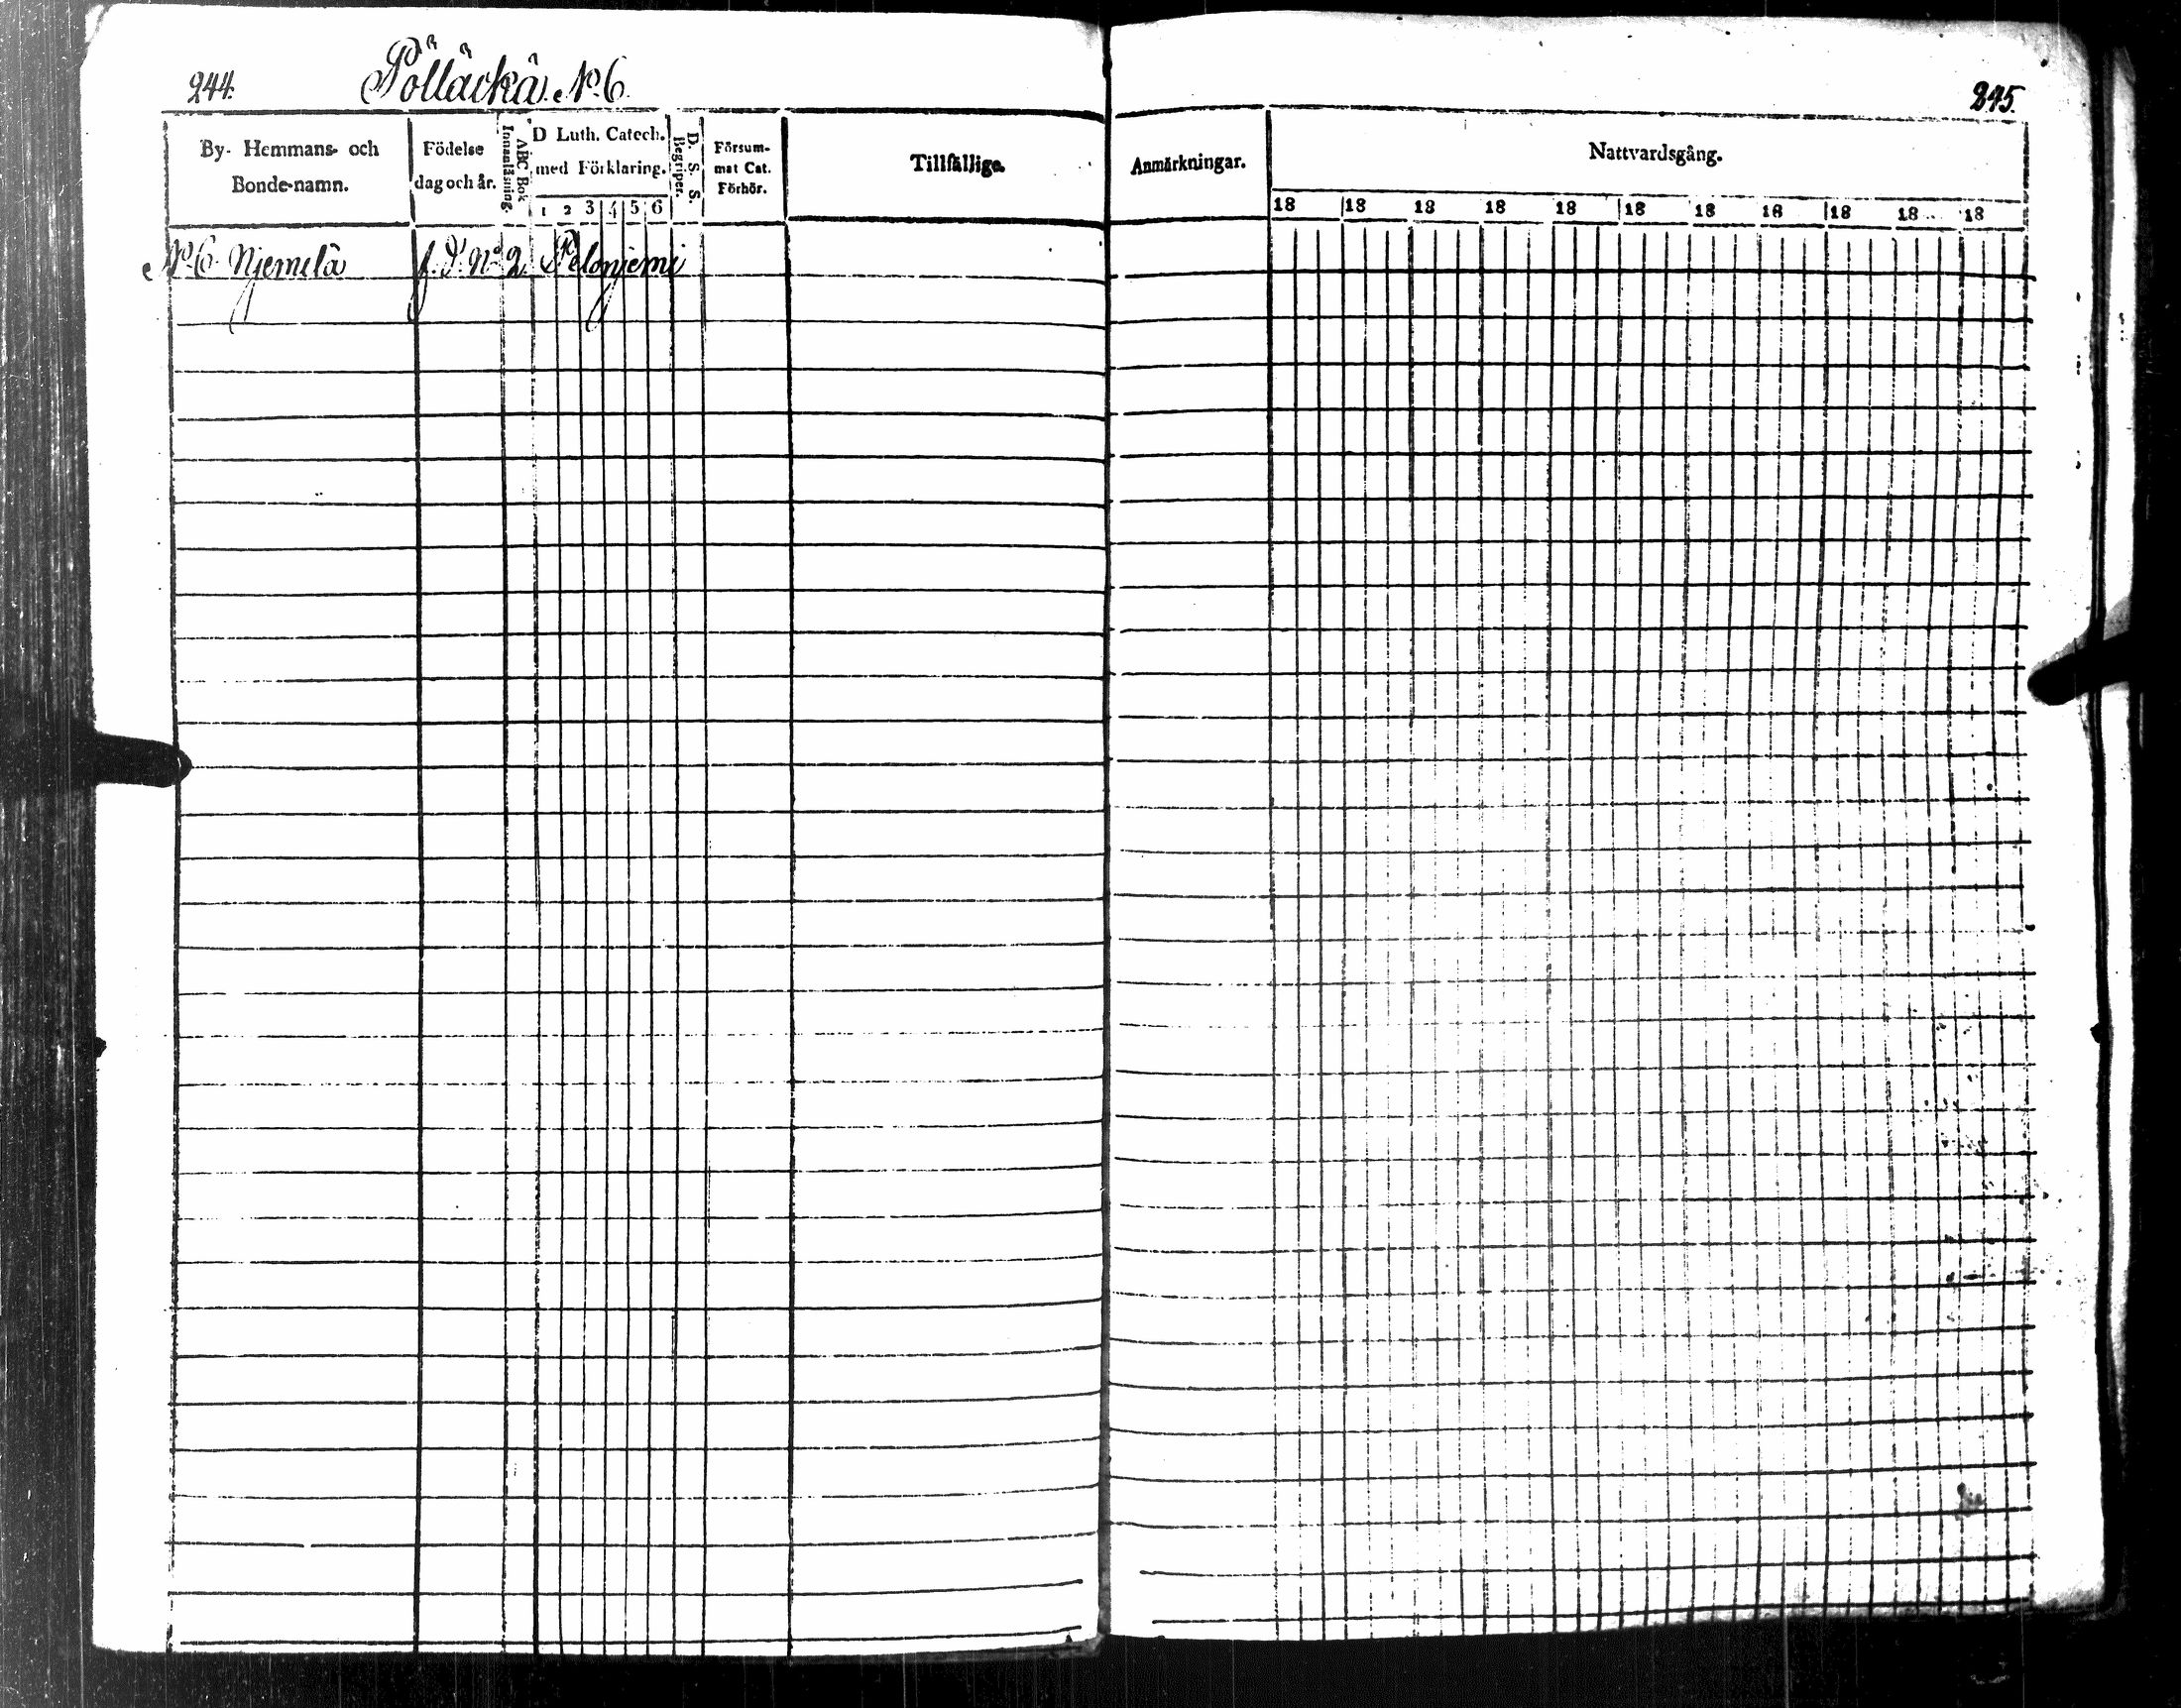 244. Pölläckä. No 6
245.
By- Hemmans- och Bonde-namn.
Födelse dag och år.
ABC Bok Innanläsning.
D Luth. Catech. med Förklaring.
1 2 3 4 5 6
D. S. S. Begriper.
Försum-mat Cat. Förhör.
Tillfällige.
Anmärkningar.
Nattvardsgång.
18 18 18 18 18 18 18 18 18 18 18
No 6. Njemelä No 2 Pelonjemi